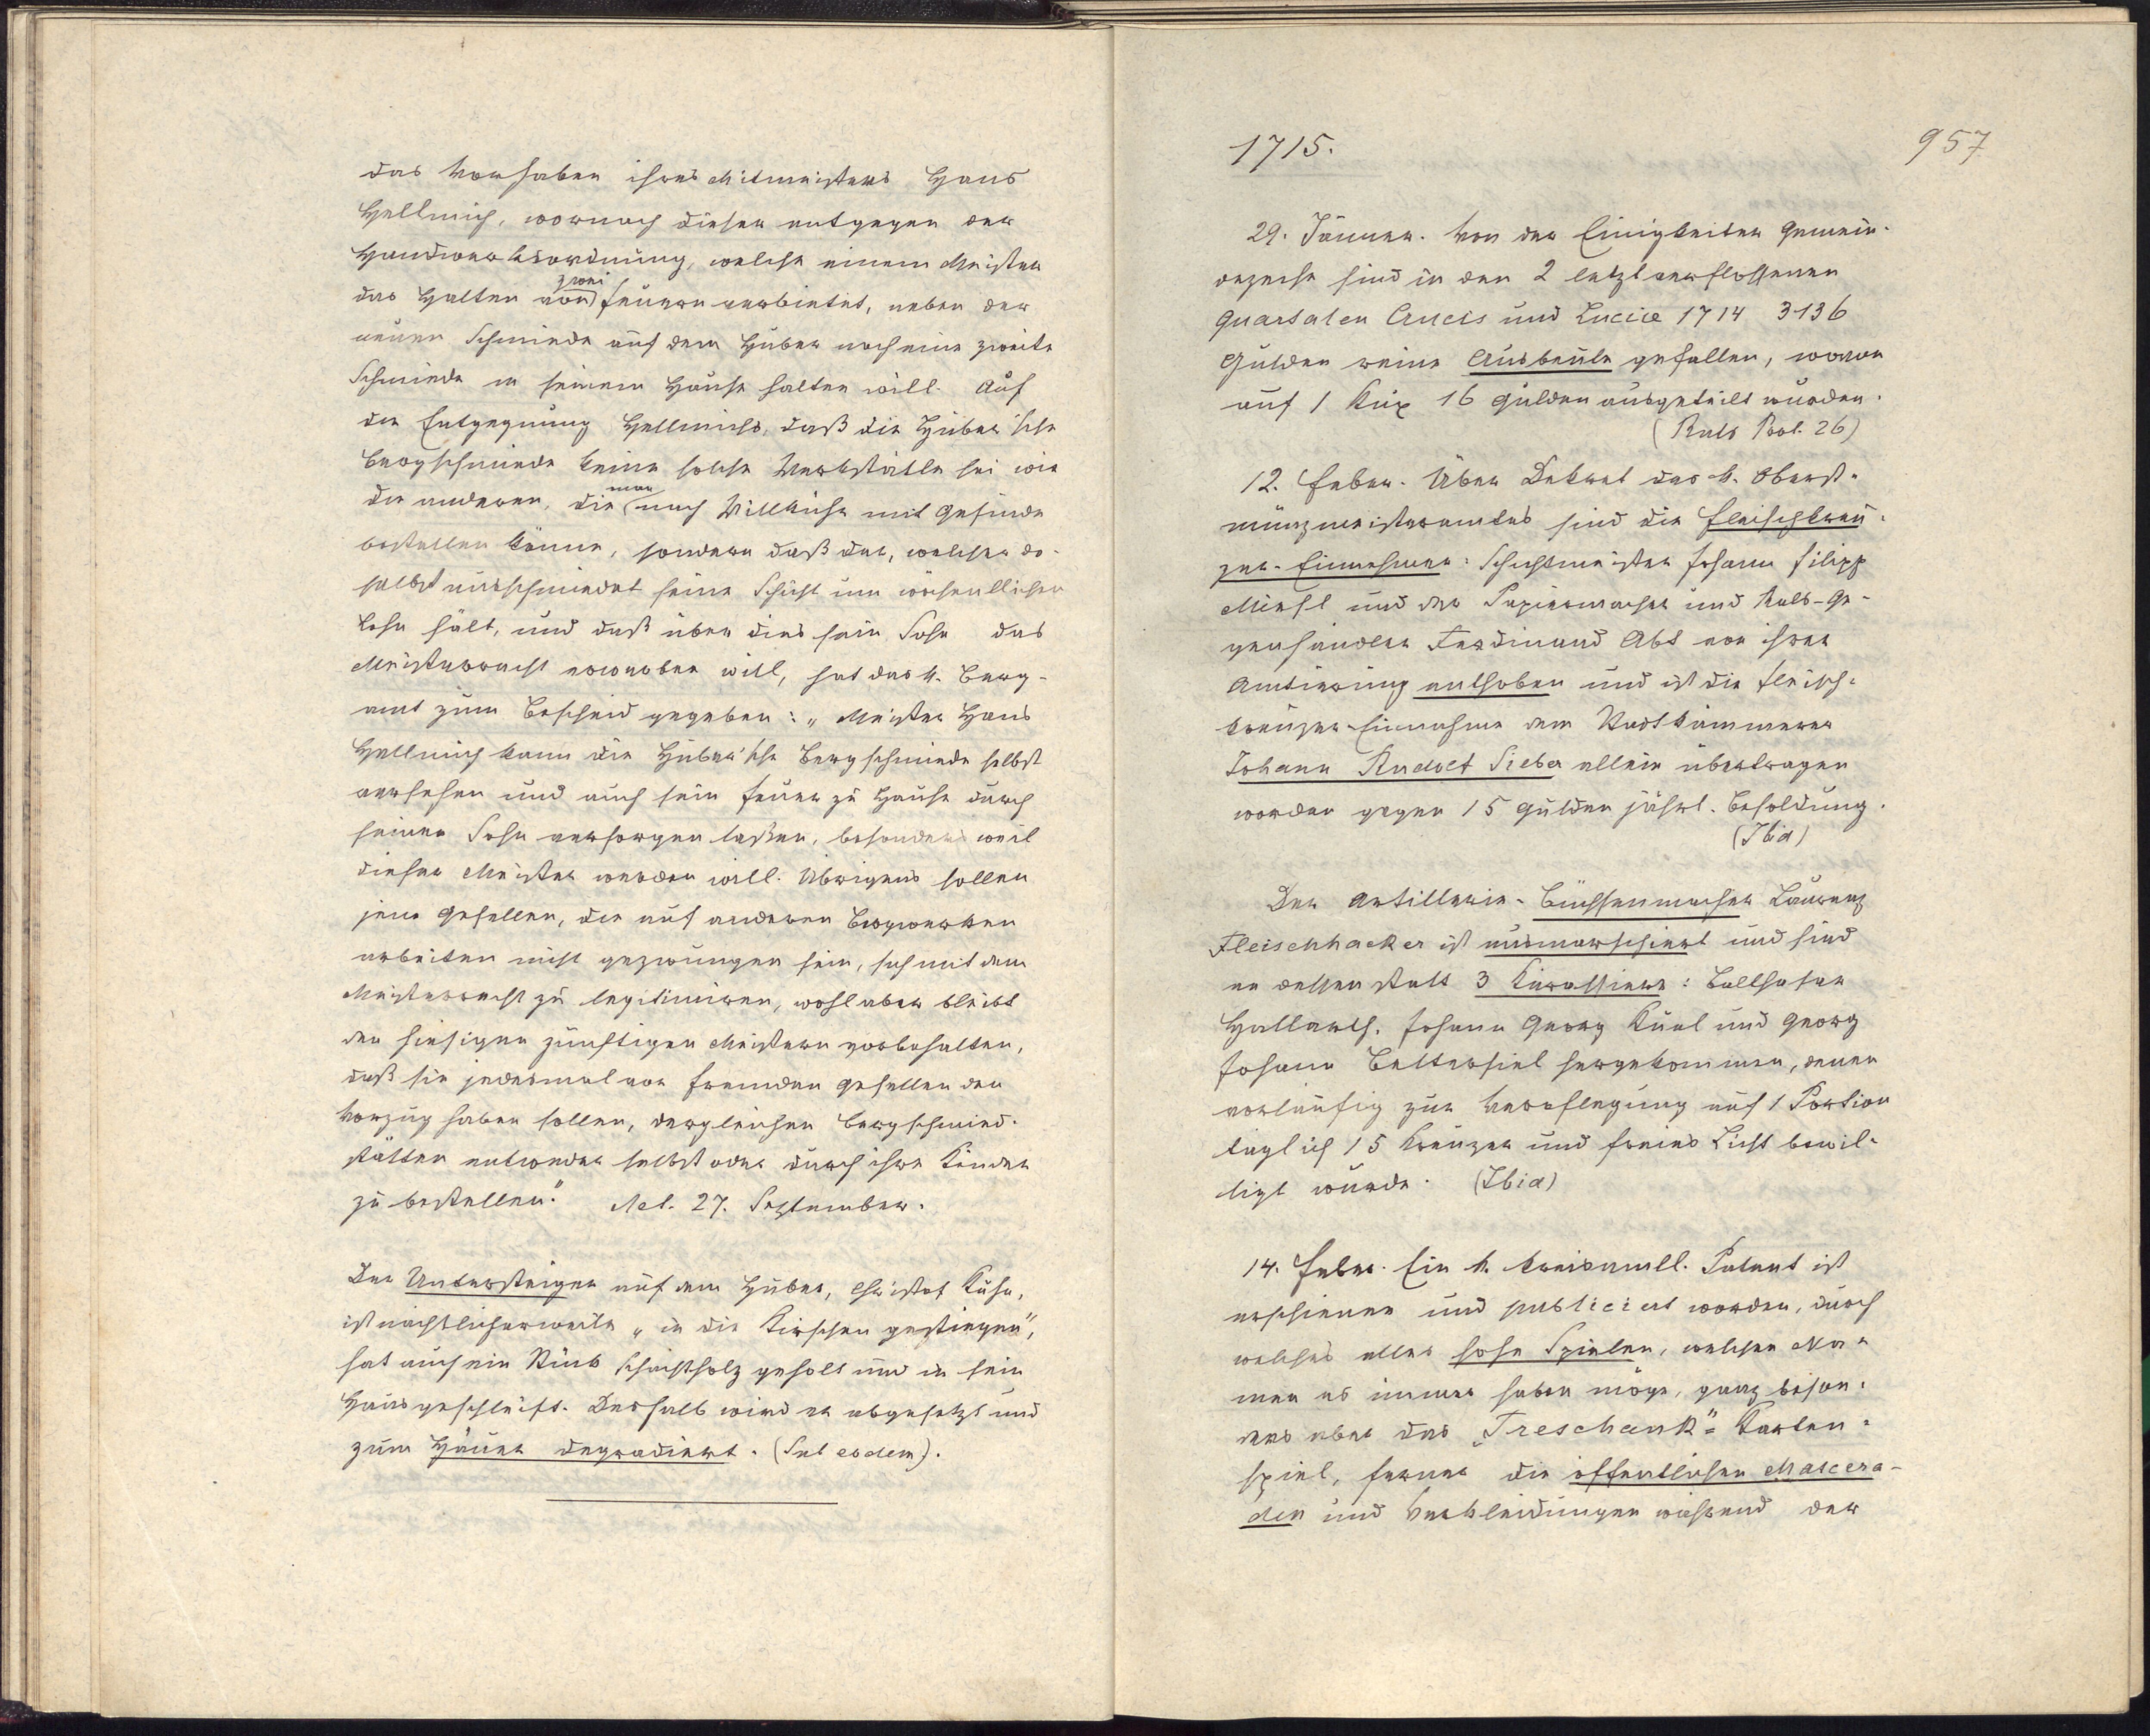 das Vorhaben ihres Mitmeisters Hans
Hellmich, wornach dieser entgegen der
Handwerksordnung, welche einem Meister
das Halten von zwei Feuern verbietet, neben der
neuen Schmiede auf dem Huber noch eine zweite
Schmiede in seinem Hause halten will. Auf
die Entgegnung Hellmichs, daß die Huber'sche
Bergschmiede keine solche Werkstätte sei wie
die anderen, die man nach Willkühr mit Gesinde
bestellen könne, sondern daß der, welcher da-
selbst ausschmiedet seine Schicht um wöchentlichen
Lohn hält, und daß über dies sein Sohn das
Meisterrecht erwerben will, hat das k. Berg-
amt zum Bescheid gegeben: „Meister Hans
Hellmich kann die Huber'sche Bergschmiede selbst
versehen und auch sein Feuer zu Hause durch
seinen Sohn versorgen lassen, besonders weil
dieser Meister werden will. Übrigens sollen
jene Gesellen, die auf anderen Bergwerken
arbeiten nicht gezwungen sein, sich mit dem
Meisterrecht zu legitimiren, wohl aber bleibt
den hiesigen zünftigen Meistern vorbehalten,
daß sie jedesmal vor fremden Gesellen den
Vorzug haben sollen, dergleichen Bergschmied-
stätten entweder selbst oder durch ihre Kinder
zu bestellen." Act. 27. September.
Der Untersteiger auf dem Huber, Christof Kühn,
ist nächtlicherweile „in die Kirschen gestiegen",
hat auch ein Stück Schachtholz geholt und in sein
Haus geschleift. Deshalb wird er abgesetzt und
zum Häuer degradiert. (Sub eodem).
1715.
957
29. Jänner. Von der Einigkeiter Gemein-
dezeche sind in den 2 letzt verflossenen
Quartalen Crucis und Luciae 1714 3136
Gulden reine Ausbeute gefallen, wovon
auf 1 Kux 16 Gulden ausgeteilt wurden.
(Rats Prot. 26)
12. Feber. Über Dekret des k. Oberst-
münzmeisteramtes sind die Fleischkreu-
zer-Einnehmer: Schichtmeister Johann Filipp
Miesl und der Papiermacher und Rats-Ge-
genhändler Ferdinand Abt von ihrer
Amtierung enthoben und ist die Fleisch-
kreuzer-Einnahme dem Stadtkämmerer
Johann Rudolf Sieber allein übertragen
worden gegen 15 Gulden jährl. Besoldung.
(Ibid)
Der Artillerie-Büchsenmacher Laurenz
Fleischhacker ist ausmarschiert und sind
an dessen statt 3 Kürassiere: Balthasar
Hallarth, Johann Georg Kual und Georg
Johann Beltersiel hergekommen, denen
vorläufig zur Verpflegung auf 1 Portion
täglich 15 Kreuzer und freies Licht bewil-
ligt wurde. (Ibid)
14. Feber. Ein k. kreisamtl. Patent ist
erschienen und publiciert worden, durch
welches alles hohe Spielen, welchen Na-
men es immer haben möge, ganz beson-
ders aber das „Treschank"-Karten-
spiel, ferner die öffentlichen Mascera-
den und Verkleidungen während der